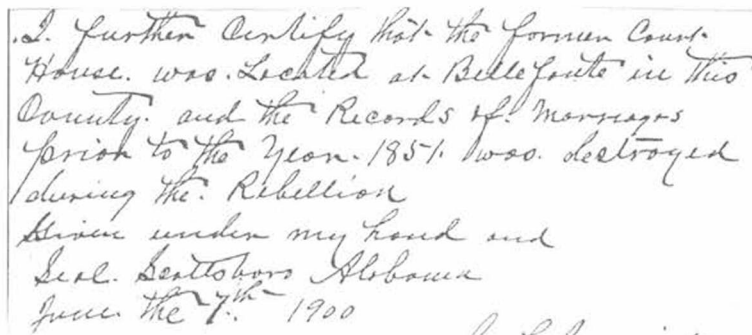 .I. further Certify that the former Court
House. was. Located at Bellefonte in this
County. and the Records of. Marriages
prior to the Year. 1851. was. destroyed
during the. Rebellion
Given under my hand and
Seal. Scottsboro Alabama
June. the 7th. 1900